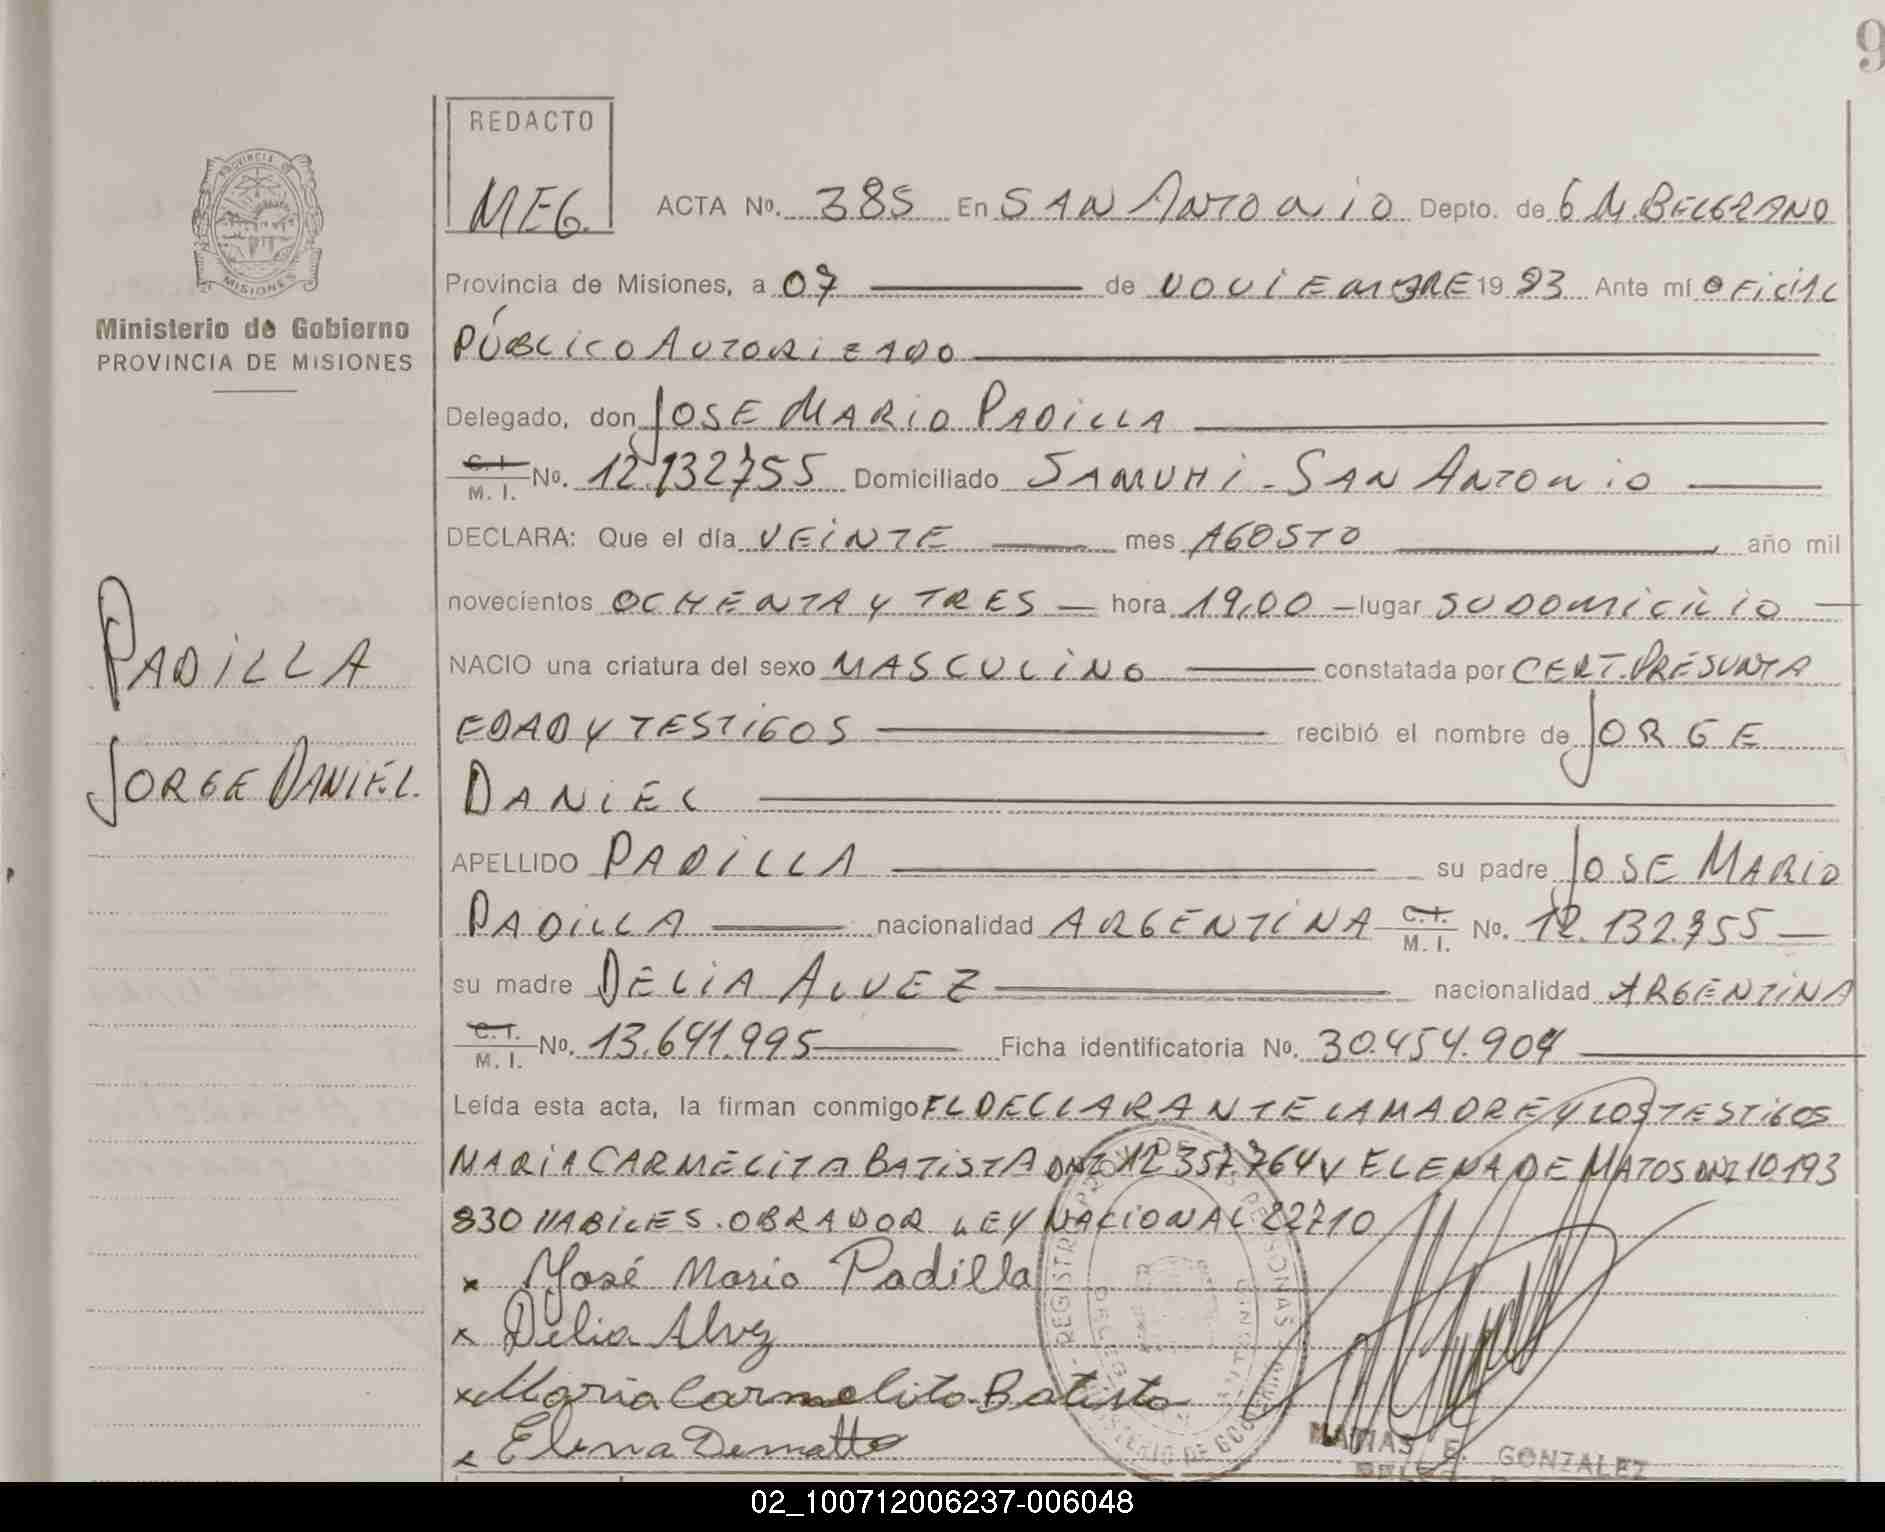 9
REDACTO
MEG.
ACTA No. 385 En SAN ANTONIO Depto. de G M. BELGRANO
PROVINCIA DE
MISIONES
Ministerio de Gobierno
PROVINCIA DE MISIONES
Provincia de Misiones, a 07 de NOVIEMBRE 1983 Ante mí OFICIAL
PÚBLICO AUTORIZADO
Delegado, don JOSE MARIO PADILLA
C. I. M. I. No. 12.132755 Domiciliado SAMUHI - SAN ANTONIO
DECLARA: Que el día VEINTE mes AGOSTO año mil
novecientos OCHENTA y TRES hora 19,00 lugar SU DOMICILIO
PADILLA
JORGE DANIEL.
NACIO una criatura del sexo MASCULINO constatada por CERT. PRESUNTA
EDAD Y TESTIGOS recibió el nombre de JORGE
DANIEL
APELLIDO PADILLA su padre JOSE MARIO
PADILLA nacionalidad ARGENTINA C. I. M. I. No. 12.132.755
su madre DELIA ALVEZ nacionalidad ARGENTINA
C. I. M. I. No. 13.641.995 Ficha identificatoria No. 30.454.904
Leída esta acta, la firman conmigo EL DECLARANTE LA MADRE Y LOS TESTIGOS
MARIA CARMELITA BATISTA DNI 12 357.764 y ELENA DE MATOS DNI 10.193
830 HABILES. OBRADOR LEY NACIONAL 22710
x José Mario Padilla
x Delia Alvez
x Maria Carmelita Batista
x Elena Dematto
MATIAS E. GONZALEZ
02_100712006237-006048